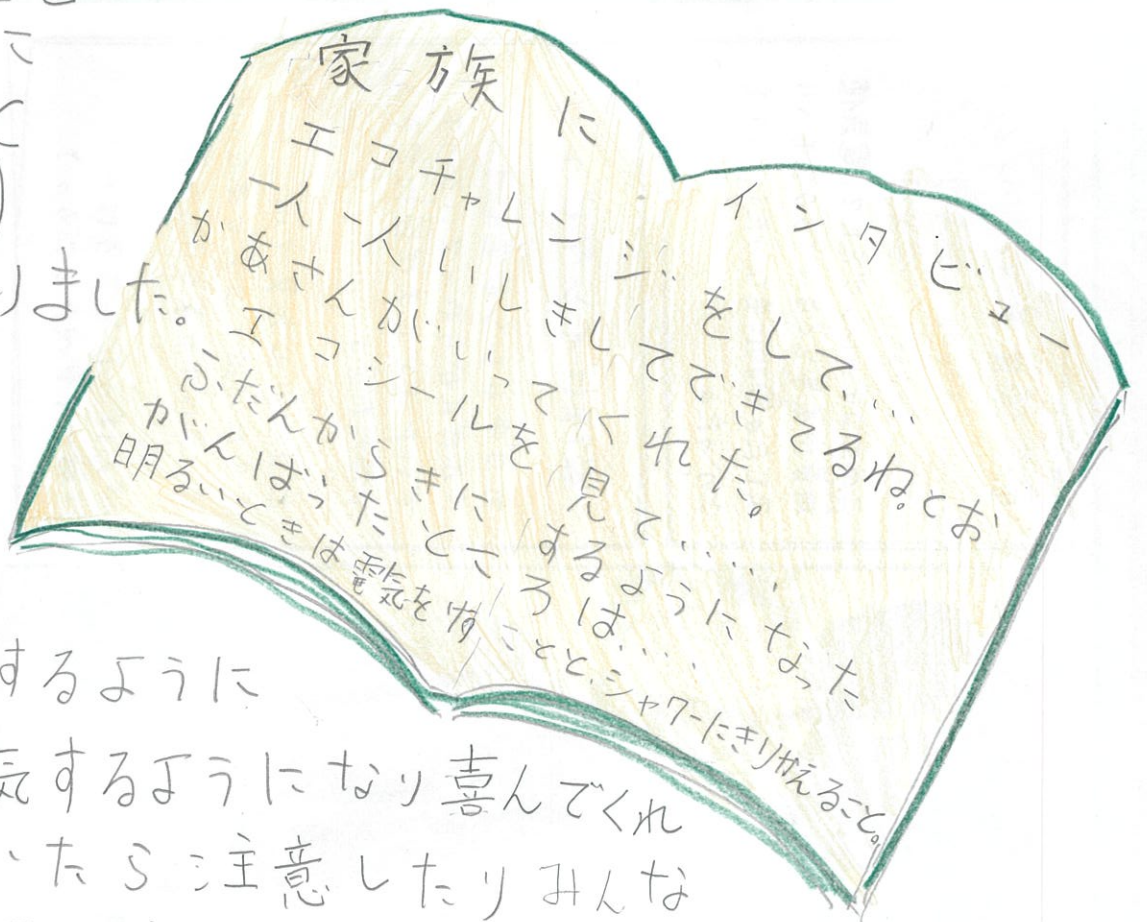 家族にインタビュー
エコチャレンジをして‥‥
一人一人いしきしてできてるね。とお
かあさんがいってくれた。
エコシールを見て‥‥‥
ふだんからきにするようになった
がんばったところは‥‥
明るいときは電気をけすことと、シャワーにきりかえること。
に
りました。
するように
気するようになり喜んでくれ
たら注意したりみんな